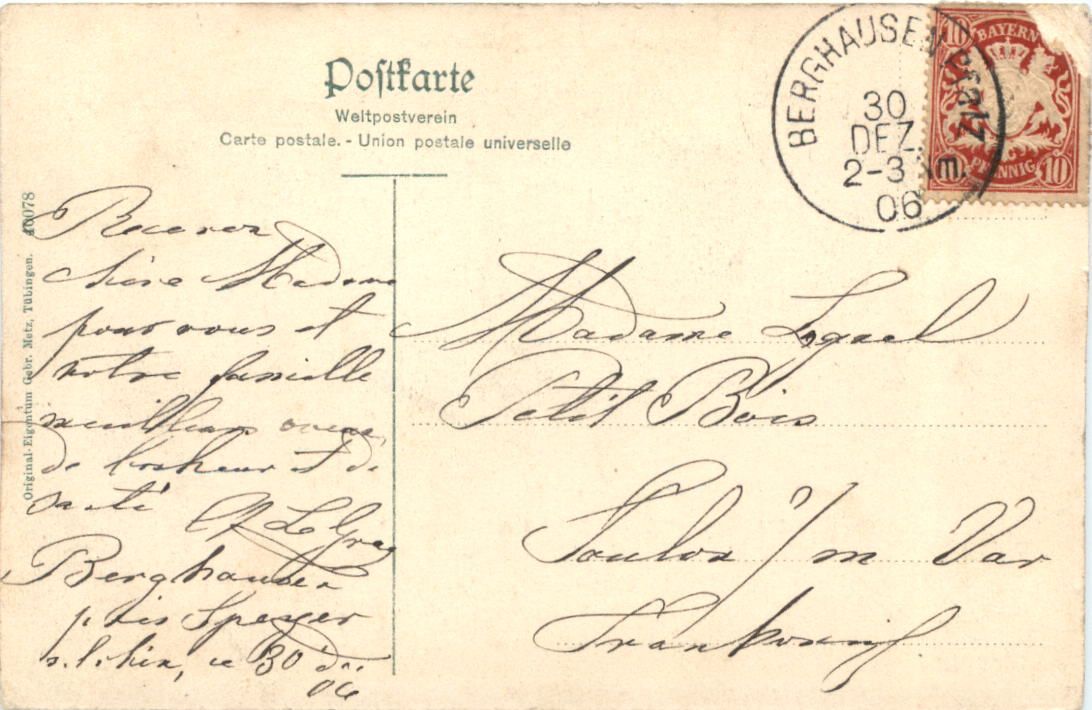 Postkarte
Weltpostverein
Carte postale. - Union postale universelle
BERGHAUSEN Pfalz
30
DEZ.
2-3 Nm.
06
10
BAYERN
PFENNIG
10
Original-Eigentum Gebr. Metz, Tübingen. 46078
Recevez
chère Madame
pour vous et
votre famille
meilleurs
de bonheur et de
santé
Le Gray
Berghausen
près Speyer
s. l. Rhin, ce 30 déc
06
Madame
Petit Bois
Toulon s/m Var
Frankreich